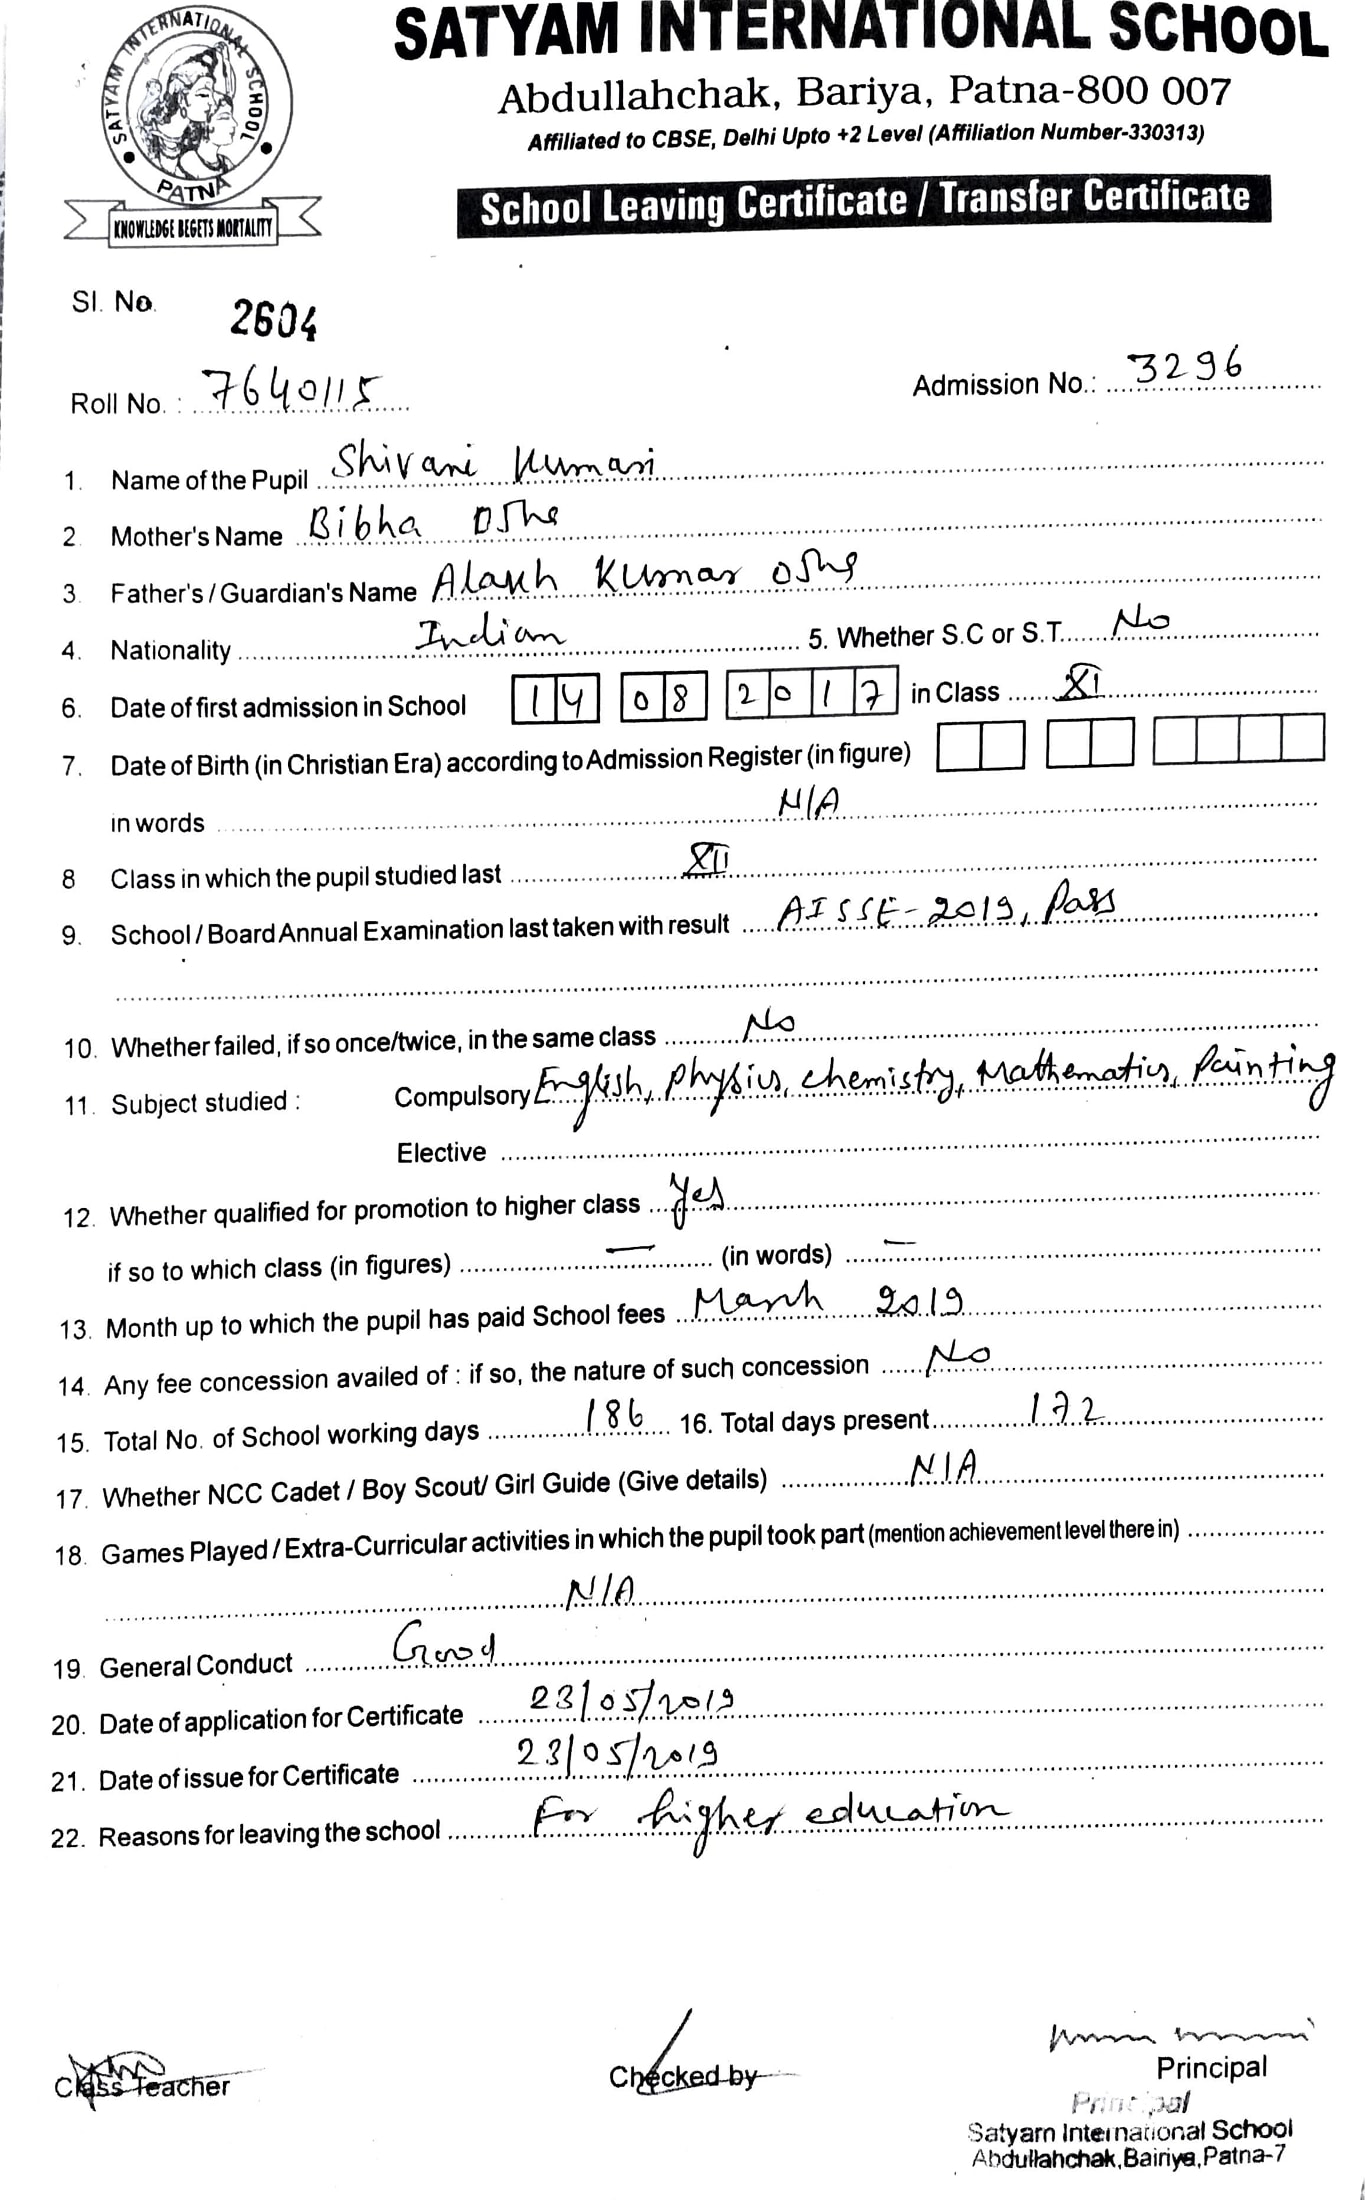 SATYAM INTERNATIONAL SCHOOL
PATNA
KNOWLEDGE BEGETS MORTALITY
SATYAM INTERNATIONAL SCHOOL
Abdullahchak, Bariya, Patna-800 007
Affiliated to CBSE, Delhi Upto +2 Level (Affiliation Number-330313)
School Leaving Certificate / Transfer Certificate
Sl. No. 2604
Roll No. : 7640115 Admission No.: 3296
1. Name of the Pupil Shivani Kumari
2. Mother's Name Bibha Ojha
3. Father's / Guardian's Name Alakh Kumar Ojha
4. Nationality Indian 5. Whether S.C or S.T. No
6. Date of first admission in School 14 08 2017 in Class XI
7. Date of Birth (in Christian Era) according to Admission Register (in figure)
in words N/A
8 Class in which the pupil studied last XII
9. School / Board Annual Examination last taken with result AISSE-2019, Pass
10. Whether failed, if so once/twice, in the same class No
11. Subject studied : Compulsory English, Physics, Chemistry, Mathematics, Painting
Elective
12. Whether qualified for promotion to higher class Yes
if so to which class (in figures) — (in words) —
13. Month up to which the pupil has paid School fees March 2019
14. Any fee concession availed of : if so, the nature of such concession No
15. Total No. of School working days 186 16. Total days present 172
17. Whether NCC Cadet / Boy Scout/ Girl Guide (Give details) N/A
18. Games Played / Extra-Curricular activities in which the pupil took part (mention achievement level there in)
N/A
19. General Conduct Good
20. Date of application for Certificate 23/05/2019
21. Date of issue for Certificate 23/05/2019
22. Reasons for leaving the school For higher education
Class Teacher Checked by Principal
Principal
Satyam International School
Abdullahchak, Bairiya, Patna-7